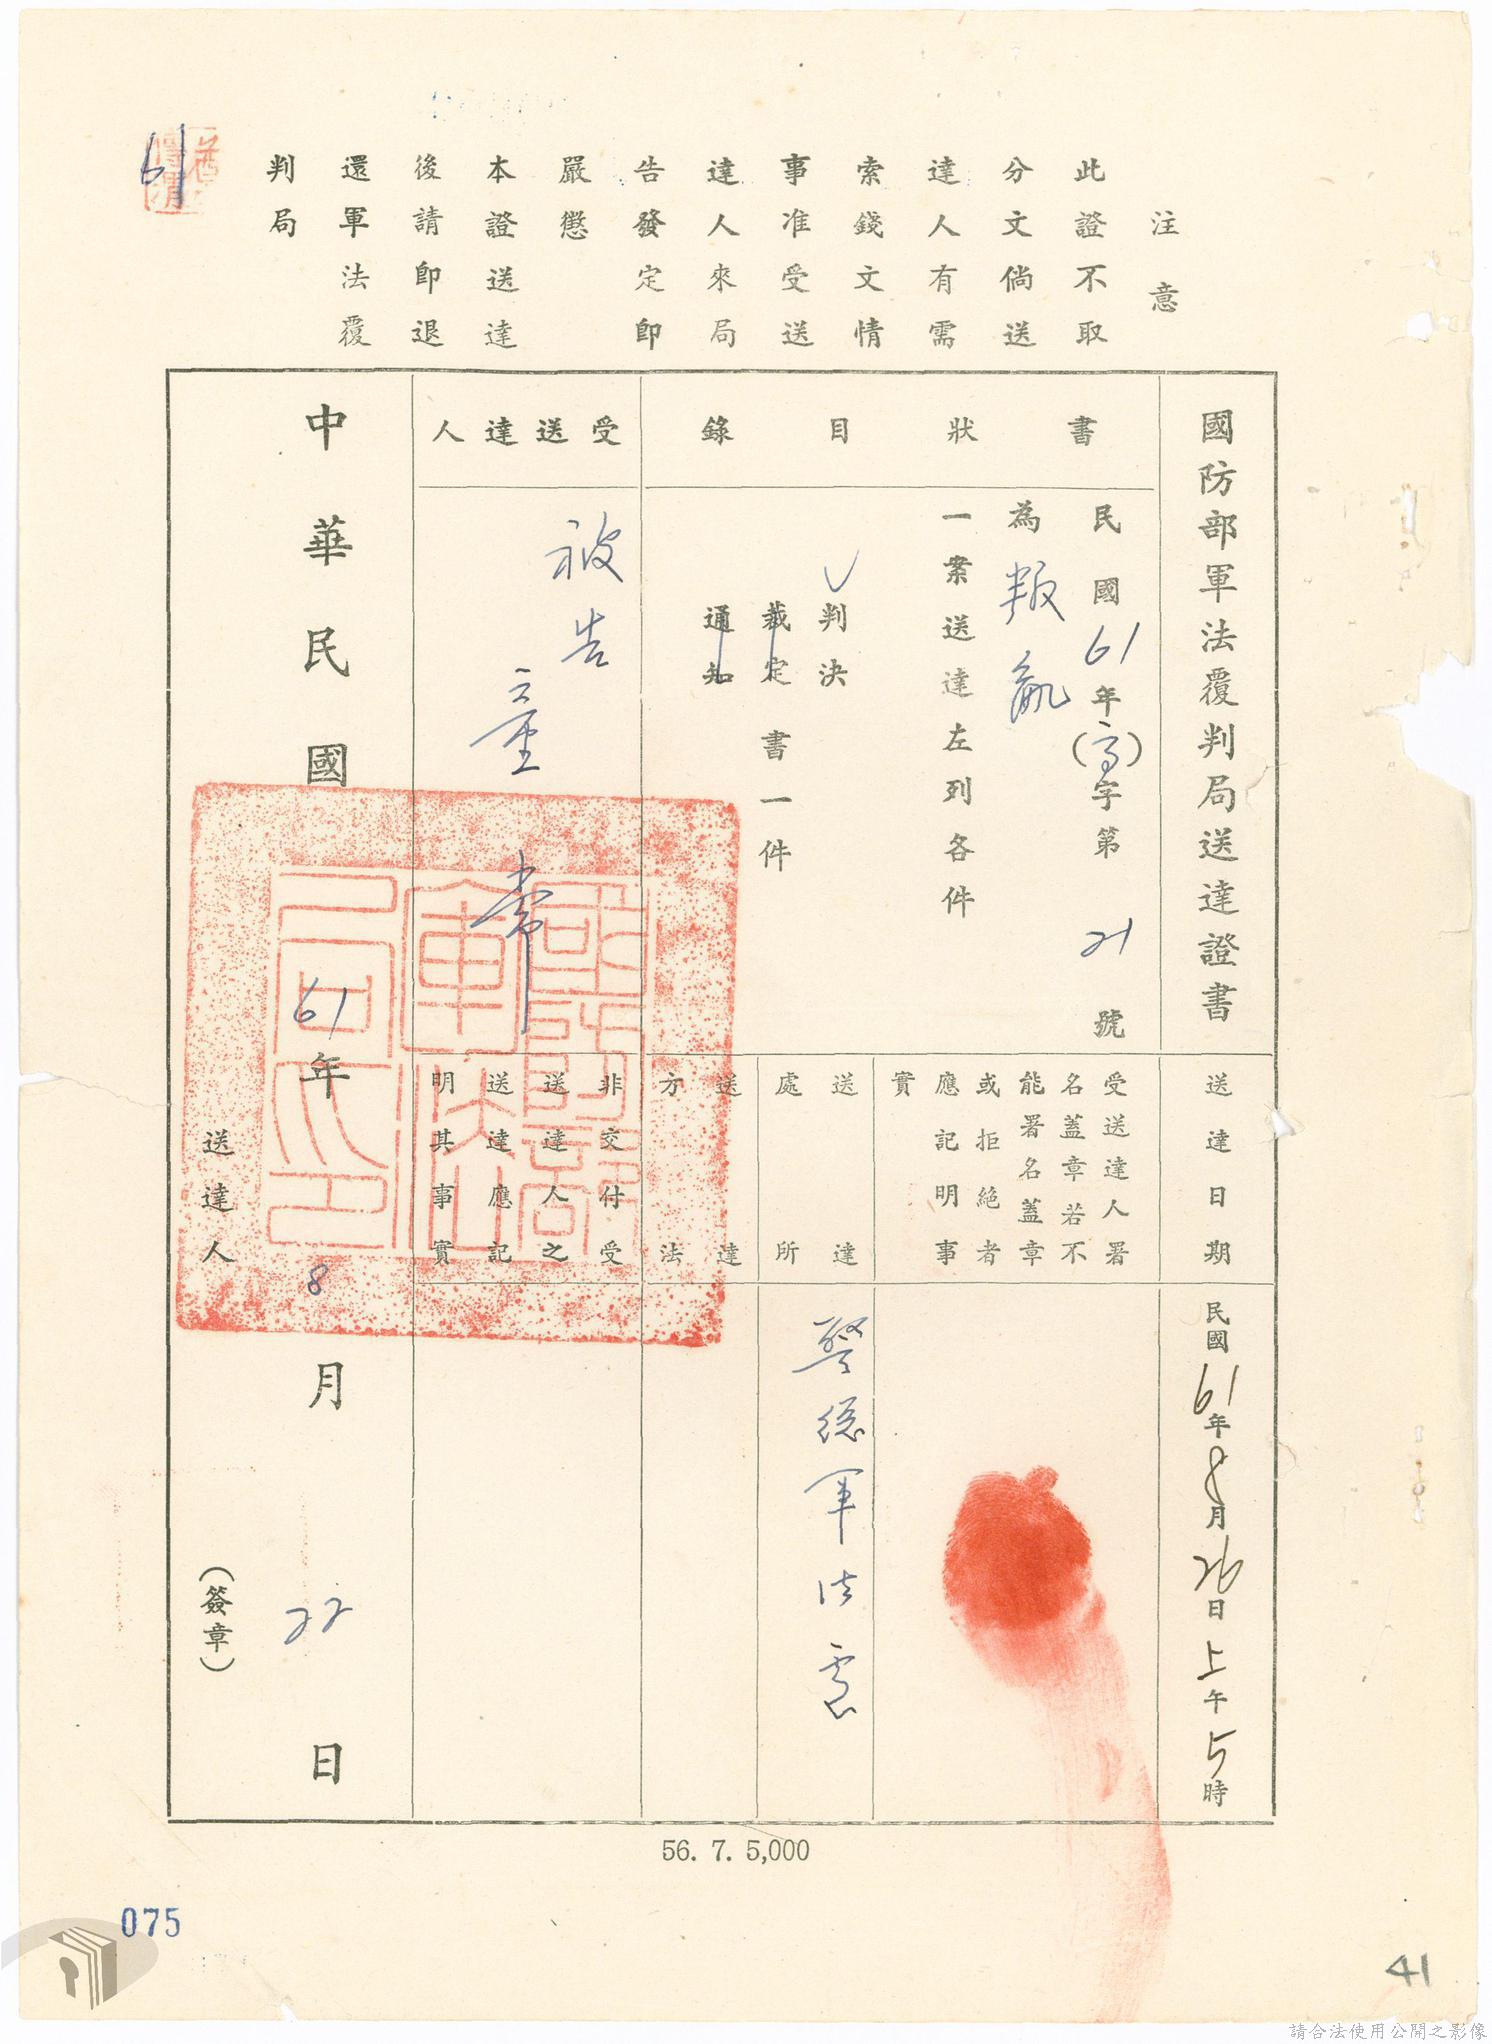 注意
此證不取
分文倘送
達人有需
索錢文情
事准受送
達人來局
告發定即
嚴懲
本證送達
後請即退
還軍法覆
判局
61
國防部軍法覆判局送達證書
書狀目錄
民國61年(高)字第21號
為叛亂
一案送達左列各件
判決
裁定書一件
通知
受送達人
被告
童常
送達日期
民國61年8月26日上午5時
受送達人署
名蓋章若不
能署名蓋章
或拒絕者
應記明事
實
送達
處所
警總軍法處
送達
方法
非交付受
送達人之
送達應記
明其事實
中華民國61年8月22日
送達人
(簽章)
56. 7. 5,000
075
41
請合法使用公開之影像